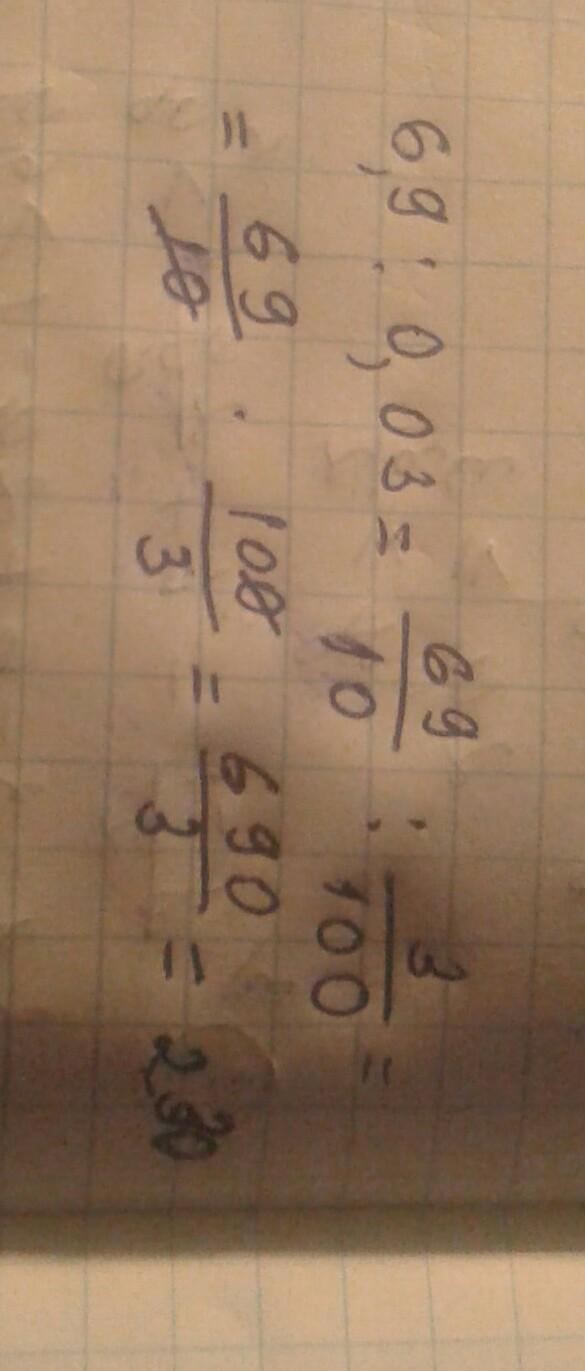 6,9 : 0,03 = 69/10 : 3/100 =
= 69/10 · 100/3 = 690/3 = 230